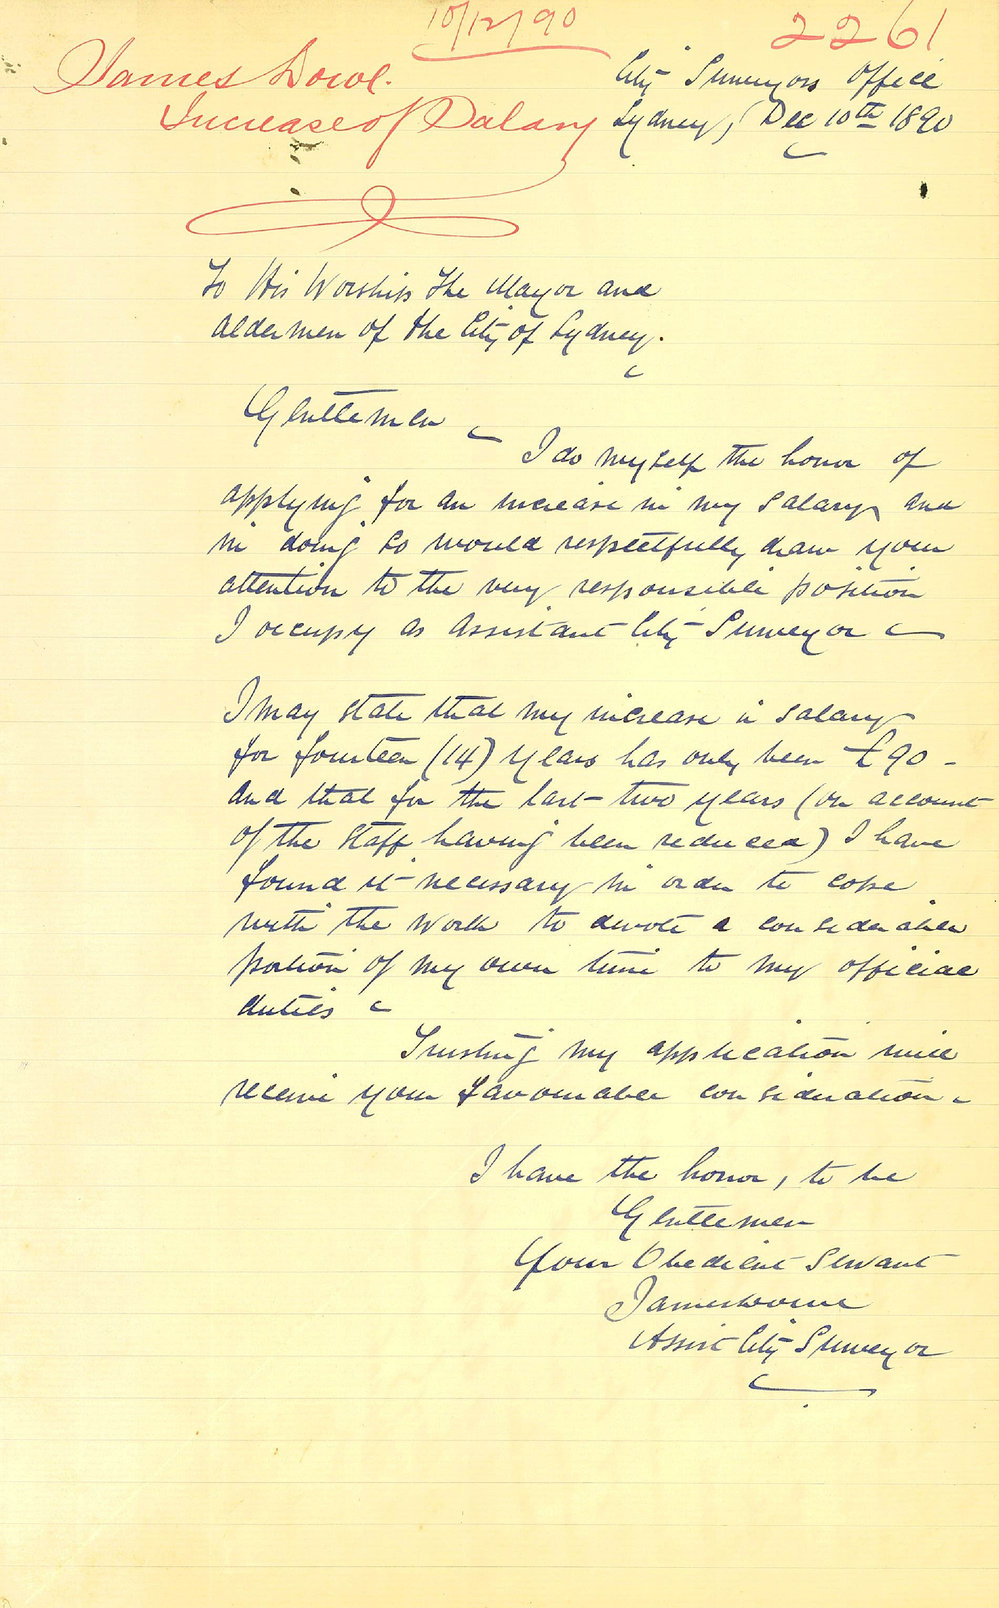 10/12/90
2261
James Dowl.
Increase of Salary
City Surveyors Office
Sydney, Dec 10th 1890
To His Worship The Mayor and
Aldermen of the City of Sydney.
Gentlemen
I do myself the honor of
applying for an increase in my salary and
in doing so would respectfully draw your
attention to the very responsible position
I occupy as Assistant City Surveyor
I may state that my increase in salary
for fourteen (14) years has only been £90 -
and that for the last two years (on account
of the staff having been reduced) I have
found it necessary in order to cope
with the work to devote a considerable
portion of my own time to my official
duties
Trusting my application will
receive your favourable consideration
I have the honor, to be
Gentlemen
Your Obedient Servant
James
Assist City Surveyor